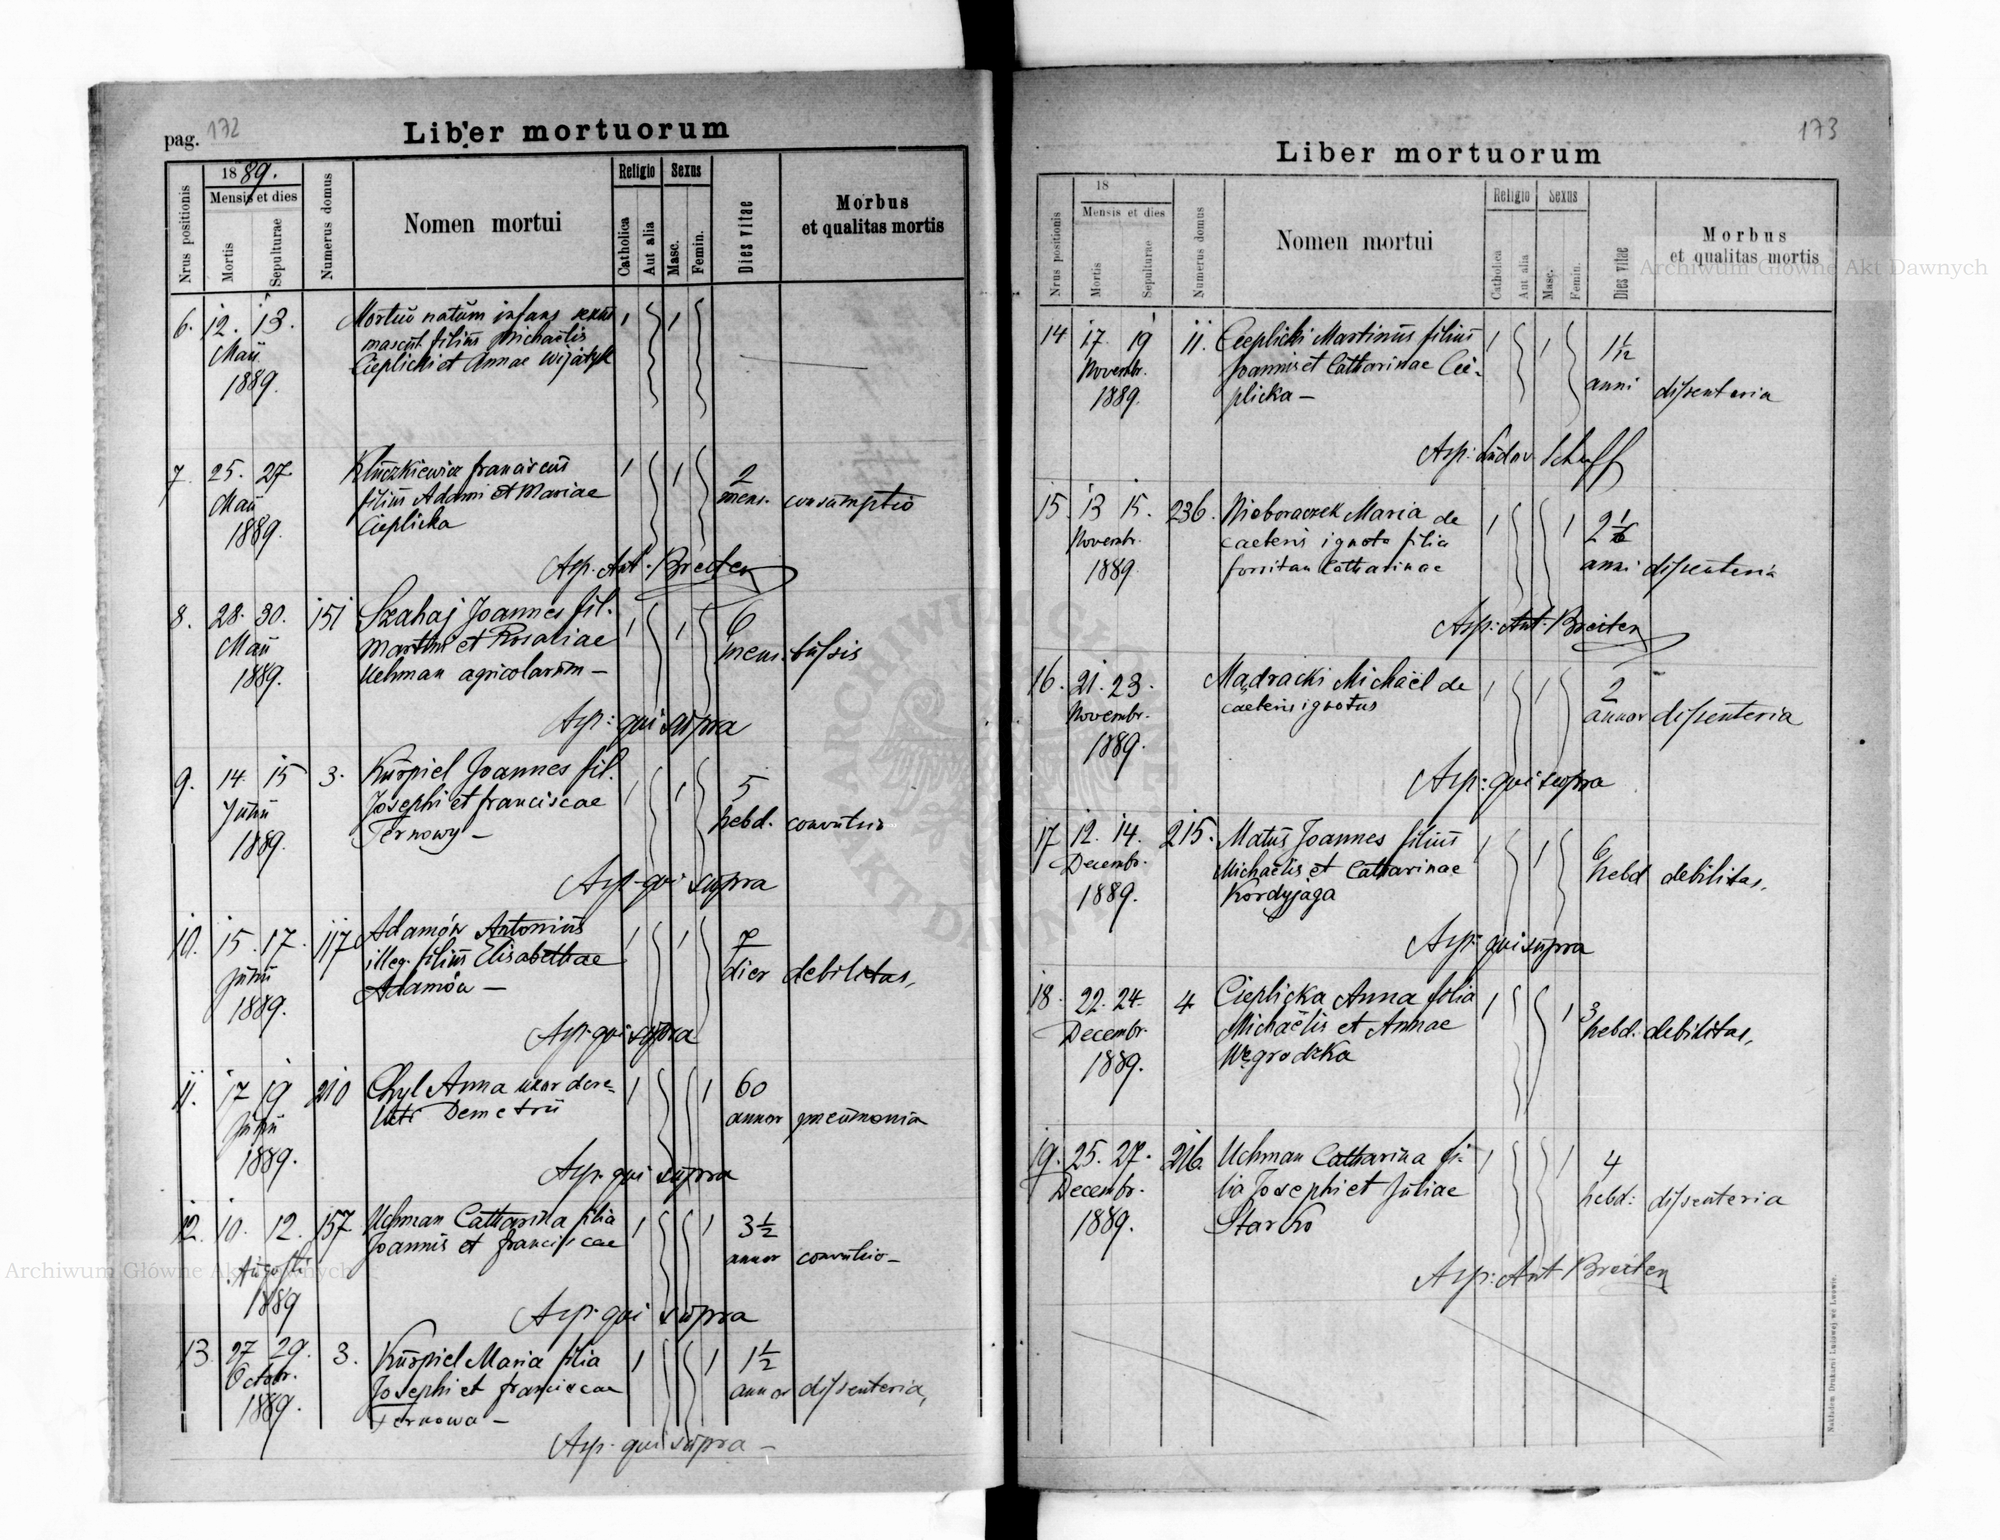 pag. 172
Liber mortuorum
Nrus positionis
1889.
Mensis et dies
Mortis
Sepulturae
Numerus domus
Nomen mortui
Religio
Catholica
Aut alia
Sexus
Masc.
Femin.
Dies vitae
Morbus
et qualitas mortis
6. 12. 13. Mortuo natum infans sexus
Maii mascul. filius Michaëlis
1889. Cieplicki et Annae Wijatyk
7 25. 27. Kluczkiewicz Franciscus 2
Maii filius Adami et Mariae mens. consumptio
1889. Cieplicka
Asp. Ant. Breiter
8. 28. 30. 151 Szahaj Joannes fil. 6
Maii Martini et Rosaliae mens. tussis
1889. Uchman agricolarum –
Asp: qui supra
9. 14 15 3. Kurpiel Joannes fil. 5
Junii Josephi et Franciscae hebd. convulsio
1889. Ternowy –
Asp. qui supra
10. 15. 17. 117 Adamów Antonius 7
Junii illeg. filius Elisabethae dier debilitas,
1889. Adamów –
Asp. qui supra
11. 17 19 210 Chyl Anna uxor dere= 60
Junii licti Demetrii annor pneumonia
1889.
Asp. qui supra
12. 10. 12. 157 Uchman Catharina filia 3 1/2
Augusti Joannis et Franciscae annor convulsio –
1889
Asp. qui supra
13 27 29. 3. Kurpiel Maria filia 1 1/2
Octobr. Josephi et Franciscae annor dissenteria,
1889. Ternowa –
Asp. qui supra –
173
Liber mortuorum
Nrus positionis
18
Mensis et dies
Mortis
Sepulturae
Numerus domus
Nomen mortui
Religio
Catholica
Aut alia
Sexus
Masc.
Femin.
Dies vitae
Morbus
et qualitas mortis
14 17. 19 11. Cieplicki Martinus filius 1 1/12
Novembr. Joannis et Catharinae Cie= anni dissenteria
1889. plicka –
Asp: Ludov. Scheff
15. 13 15. 236. Nieboraczek Maria de 2
Novembr. caeteris ignota filia anni dissenteria
1889. forsitan Catharinae
Asp: Ant. Breiter
16. 21. 23. Mądracki Michaël de 2
Novembr. caeteris ignotus annor dissenteria
1889.
Asp: qui supra
17 12. 14. 215. Matus Joannes filius 6
Decembr. Michaëlis et Catharinae hebd debilitas.
1889. Kordyjaga
Asp. qui supra
18. 22. 24. 4 Cieplicka Anna filia 3
Decembr. Michaëlis et Annae hebd. debilitas,
1889. Węgrodzka
19. 25. 27. 216. Uchman Catharina fi= 4
Decembr. lia Josephi et Juliae hebd: dissenteria
1889. Starko
Asp: Ant Breiter
Nakładem Drukarni Ludowej we Lwowie.
Archiwum Główne Akt Dawnych
Archiwum Główne Akt Dawnych
ARCHIWUM GŁÓWNE AKT DAWNYCH